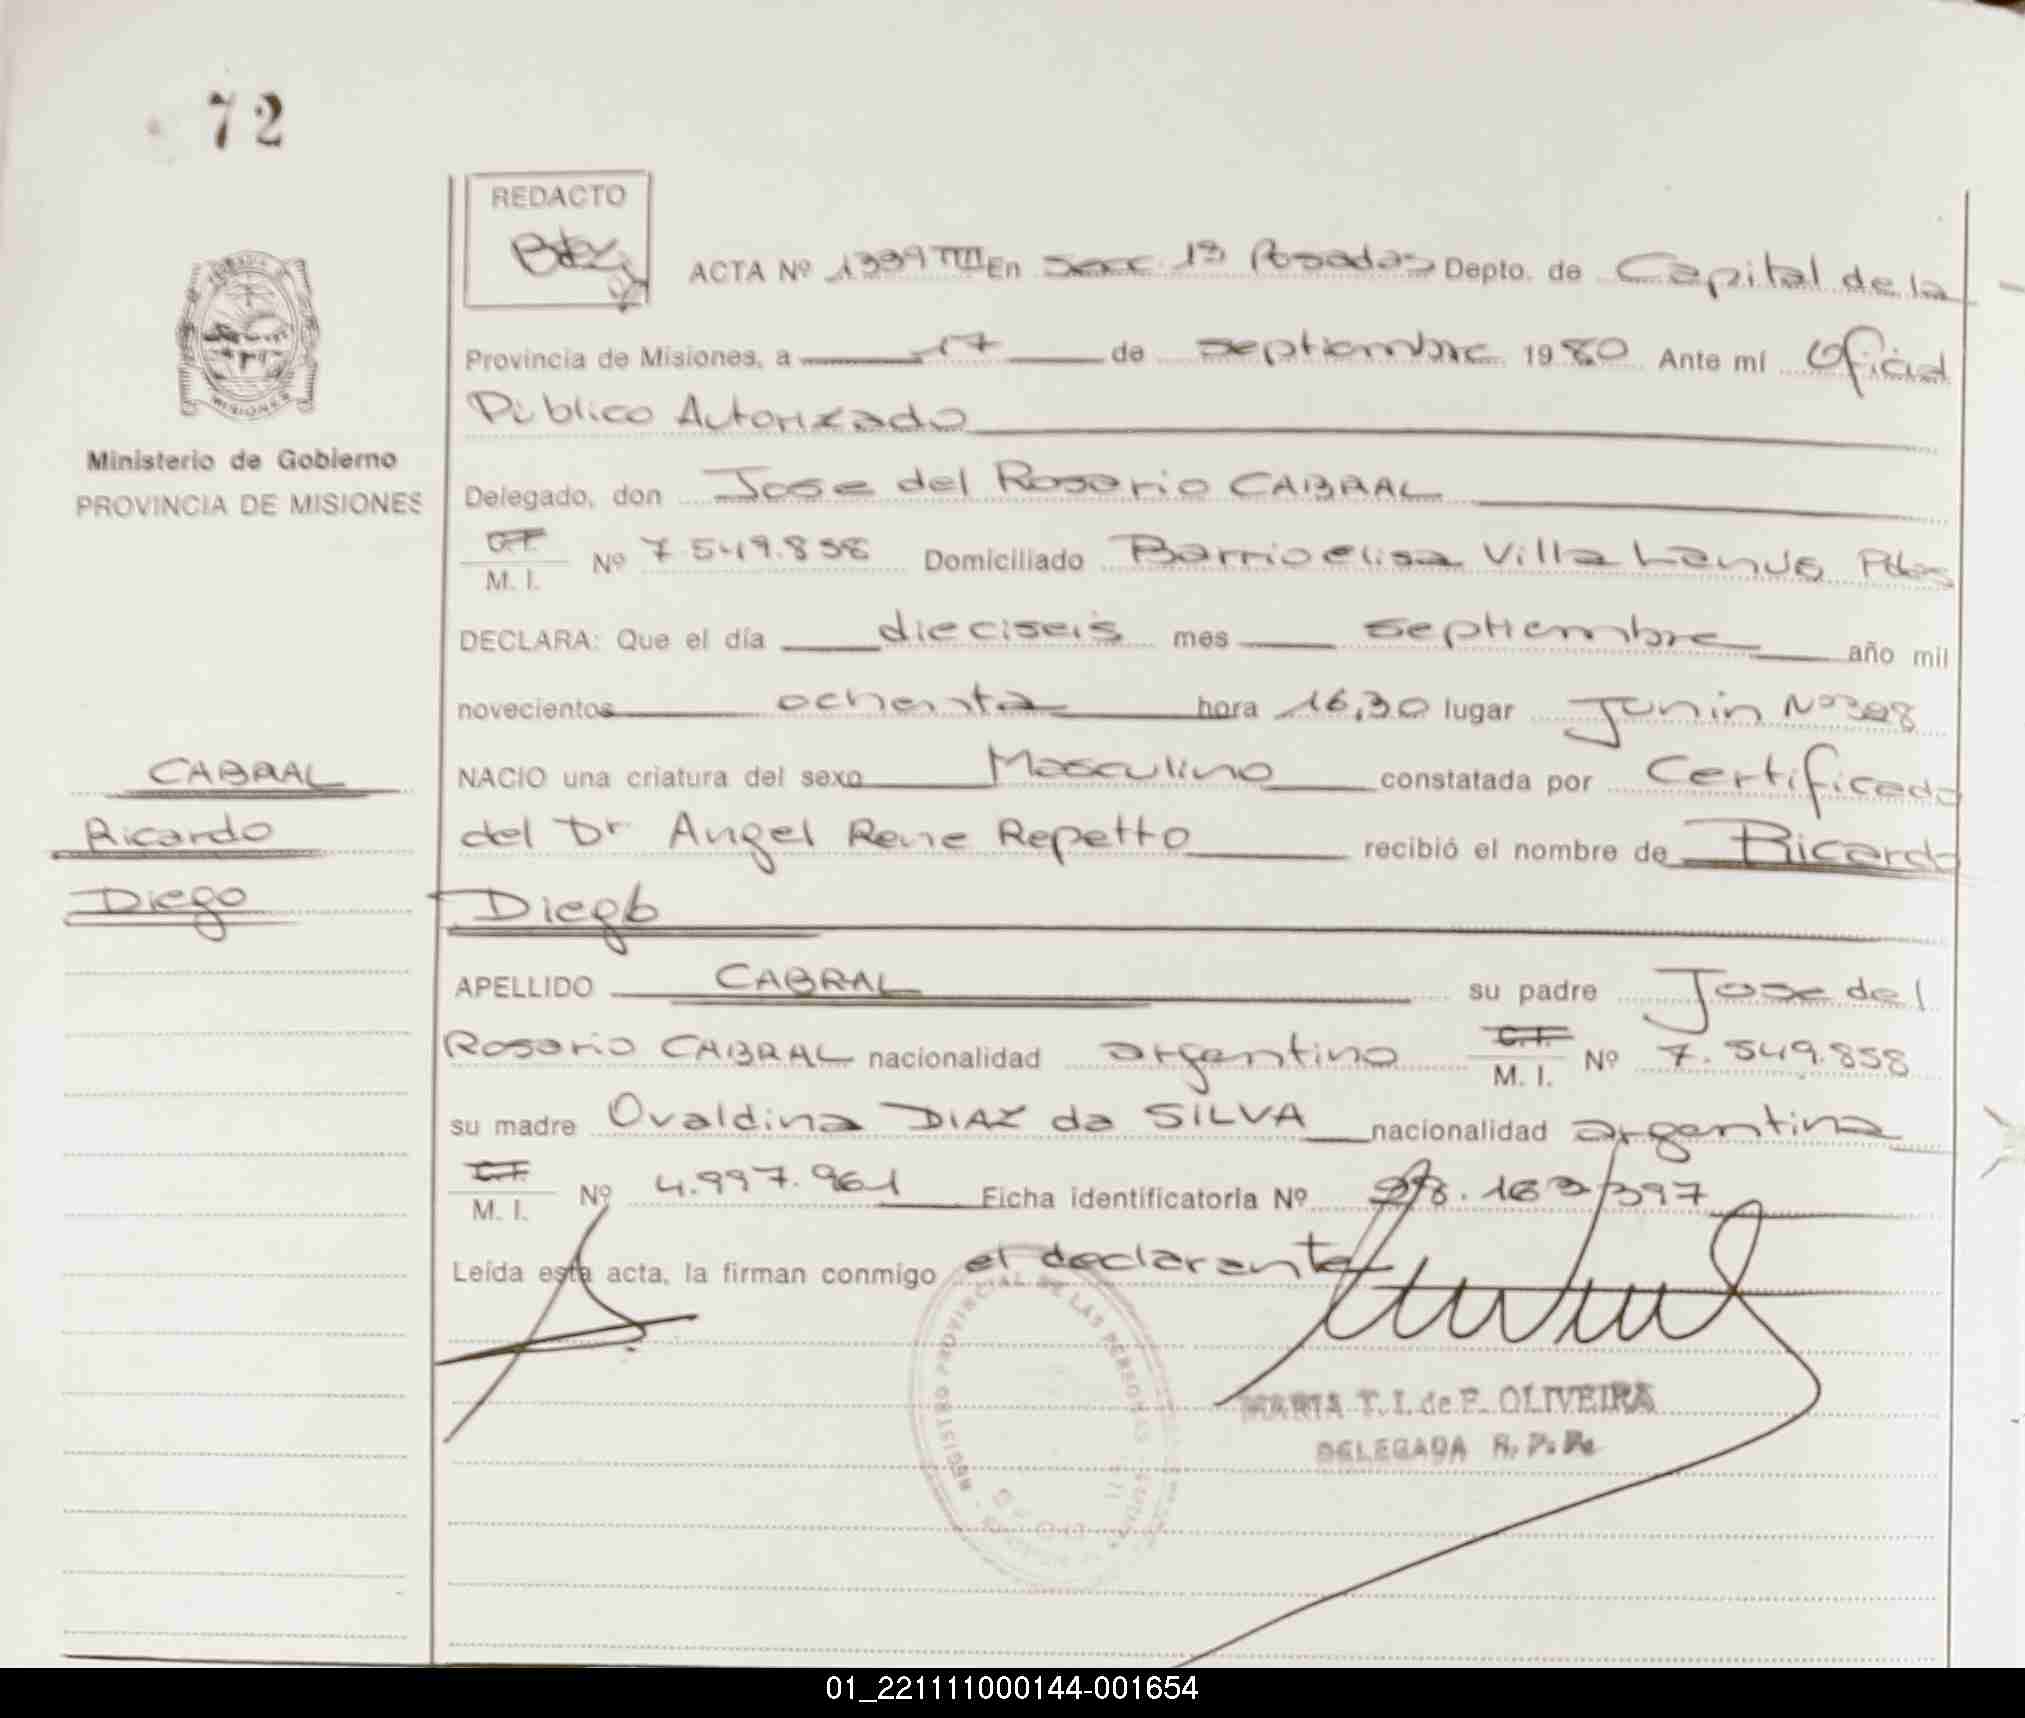 72
REDACTO
ACTA Nº 1339 TIII En Secc 1ª Posadas Depto. de Capital de la
Provincia de Misiones, a 17 de septiembre 1980 Ante mí Oficial
Público Autorizado
Ministerio de Gobierno
PROVINCIA DE MISIONES
MISIONES
Delegado, don Jose del Rosario CABRAL
C.I.
M. I. Nº 7.549.858 Domiciliado Barrio elisa Villa Lanus Pdas
DECLARA: Que el día dieciseis mes septiembre año mil
novecientos ochenta hora 16,30 lugar Junin Nº
CABRAL
Ricardo
Diego
NACIO una criatura del sexo Masculino constatada por Certificado
del Dr Angel Rene Repetto recibió el nombre de Ricardo
Diego
APELLIDO CABRAL su padre Jose del
Rosario CABRAL nacionalidad argentino C.I. M. I. Nº 7.549.858
su madre Ovaldina DIAZ da SILVA nacionalidad argentina
C.I.
M. I. Nº 4.997.961 Ficha identificatoria Nº
Leída esta acta, la firman conmigo el declarante
REGISTRO PROVINCIAL DE LAS PERSONAS
MARIA T. I. de F. OLIVEIRA
DELEGADA R. P. Ps
01_221111000144-001654